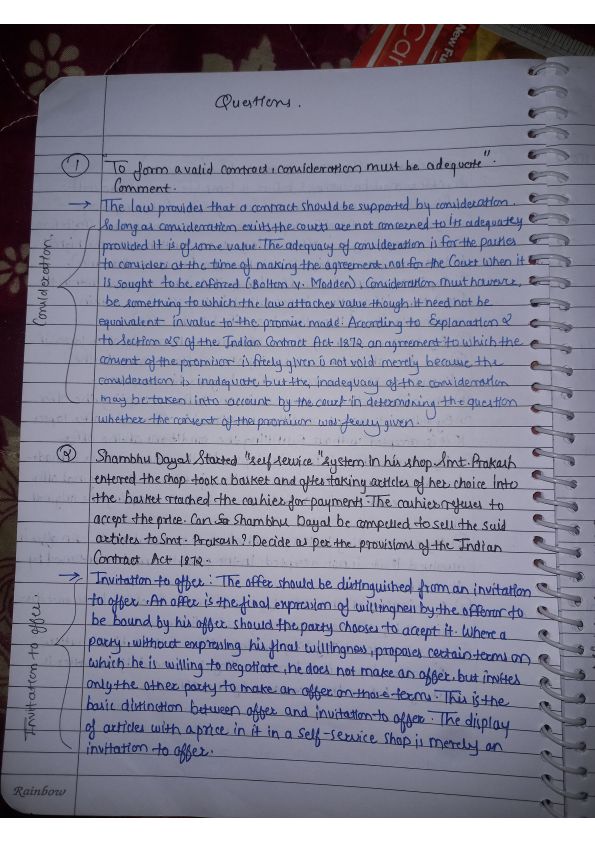 Car
New Fu
Questions.
① "To form a valid contract, consideration must be adequate".
Comment.
→ The law provides that a contract should be supported by consideration.
So long as consideration exists the courts are not concerned to its adequacy
provided it is of some value. The adequacy of consideration is for the parties
to consider at the time of making the agreement, not for the Court when it
is sought to be enforced (Bolton v. Madden). Consideration must however,
be something to which the law attaches value though it need not be
equivalent in value to the promise made. According to Explanation 2
to Section 25 of the Indian Contract Act 1872 an agreement to which the
consent of the promisor is freely given is not void merely because the
consideration is inadequate but the, inadequacy of the consideration
may be taken into account by the court in determining the question
whether the consent of the promisor was freely given.
Consideration.
② Shambhu Dayal started "self service" system in his shop. Smt. Prakash
entered the shop took a basket and after taking articles of her choice into
the basket reached the cashier for payments. The cashier refuses to
accept the price. Can Shambhu Dayal be compelled to sell the said
articles to Smt. Prakash? Decide as per the provisions of the Indian
Contract Act 1872.
→ Invitation to offer: The offer should be distinguished from an invitation
to offer. An offer is the final expression of willingness by the offeror to
be bound by his offer should the party chooses to accept it. Where a
party, without expressing his final willingness, proposes certain terms on
which he is willing to negotiate, he does not make an offer, but invites
only the other party to make an offer on those terms. This is the
basic distinction between offer and invitation to offer. The display
of articles with a price in it in a self-service shop is merely an
invitation to offer.
Invitation to offer.
Rainbow